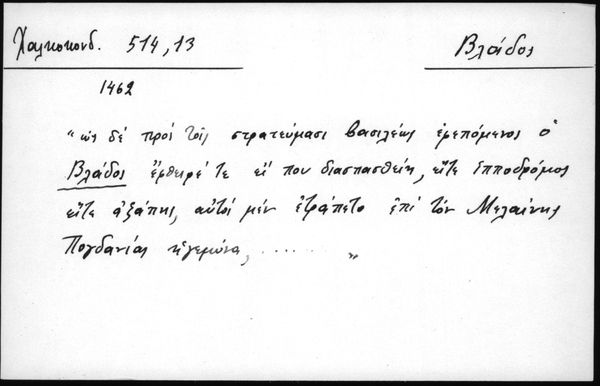 Χαλκοκονδ. 514,13
Βλάδος
1462
"ὡς δὲ πρὸς τοῖς στρατεύμασι βασιλέως ἐφεπόμενος ὁ
Βλάδος ἔφθειρέ τε εἴ που διασπασθείη, εἴτε ἱπποδρόμος
εἴτε ἀζάπης, αὐτὸς μὲν ἐτράπετο ἐπὶ τὸν Μελαίνης
Πογδανίας ἡγεμόνα, ......... "